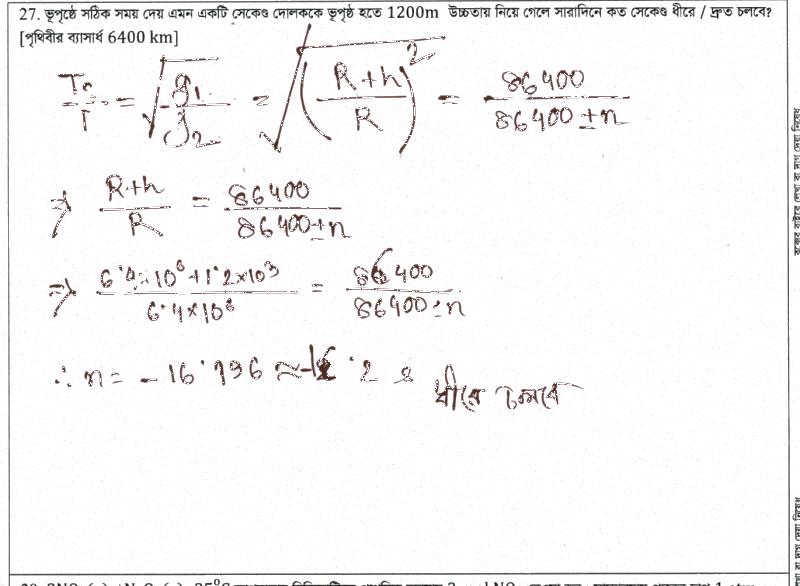 27. ভূপৃষ্ঠে সঠিক সময় দেয় এমন একটি সেকেণ্ড দোলককে ভূপৃষ্ঠ হতে 1200m উচ্চতায় নিয়ে গেলে সারাদিনে কত সেকেণ্ড ধীরে / দ্রুত চলবে?
[পৃথিবীর ব্যাসার্ধ 6400 km]
= √(g₁/g₂) = √((R+h)/R)² = 86400/(86400±n)
⇒ (R+h)/R = 86400/(86400±n)
⇒ (6.4×10⁶+1.2×10³)/(6.4×10⁶) = 86400/(86400±n)
∴ n = -16.196 ≈ .2 s ধীরে চলবে